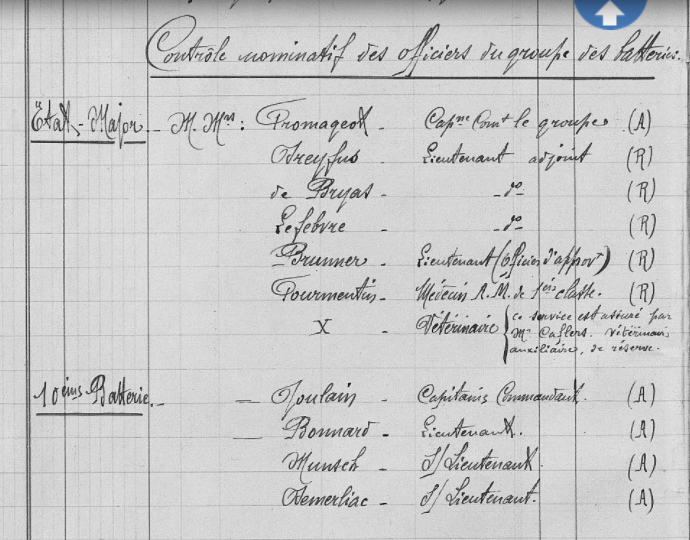 Contrôle nominatif des officiers du groupe des batteries.
Etat-Major. M. Mrs: Fromageot - Capne Comt le groupe (A)
Dreyfus - Lieutenant adjoint (R)
de Bryas - do (R)
Lefebvre - do (R)
Brunner - Lieutenant (officier d'appovt) (R)
Fourmentin - Médecin A.M. de 1ère classe. (R)
X - Vétérinaire { ce service est assuré par
Mr Vétérinaire
auxiliaire, de réserve.
10eme Batterie. - Joulain - Capitaine Commandant. (A)
- Bonnard - Lieutenant. (A)
Munsch - S/Lieutenant. (A)
- S/Lieutenant. (A)